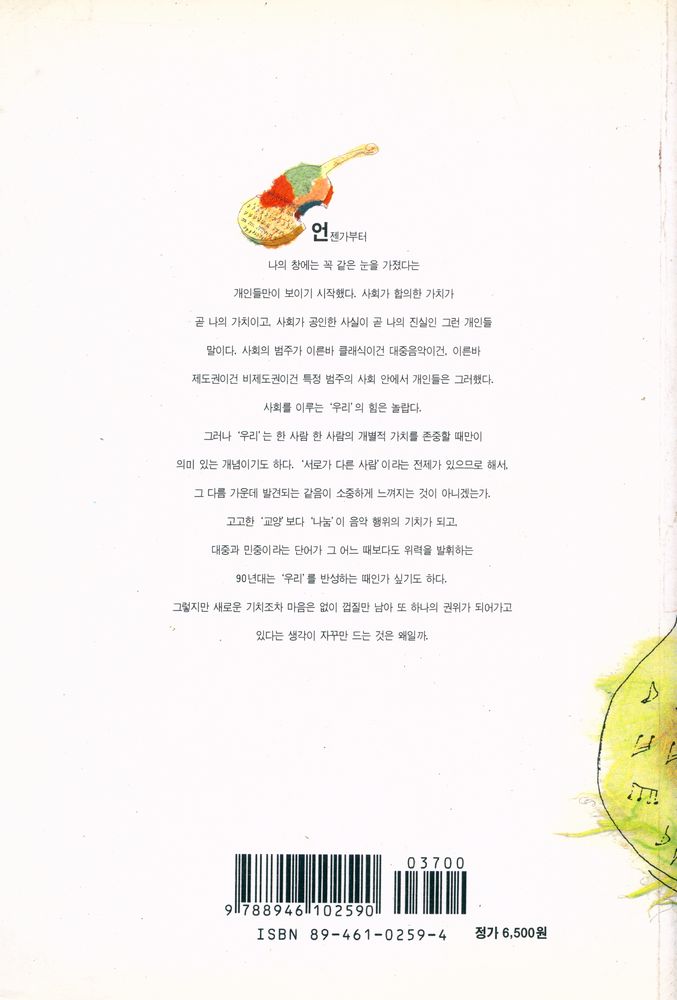 언젠가부터
나의 창에는 꼭 같은 눈을 가졌다는
개인들만이 보이기 시작했다. 사회가 합의한 가치가
곧 나의 가치이고, 사회가 공인한 사실이 곧 나의 진실인 그런 개인들
말이다. 사회의 범주가 이른바 클래식이건 대중음악이건, 이른바
제도권이건 비제도권이건 특정 범주의 사회 안에서 개인들은 그러했다.
사회를 이루는 '우리'의 힘은 놀랍다.
그러나 '우리'는 한 사람 한 사람의 개별적 가치를 존중할 때만이
의미 있는 개념이기도 하다. '서로가 다른 사람'이라는 전제가 있으므로 해서,
그 다름 가운데 발견되는 같음이 소중하게 느껴지는 것이 아니겠는가.
고고한 '교양'보다 '나눔'이 음악 행위의 기치가 되고,
대중과 민중이라는 단어가 그 어느 때보다도 위력을 발휘하는
90년대는 '우리'를 반성하는 때인가 싶기도 하다.
그렇지만 새로운 기치조차 마음은 없이 껍질만 남아 또 하나의 권위가 되어가고
있다는 생각이 자꾸만 드는 것은 왜일까.
03700
9 788946 102590
ISBN 89-461-0259-4
정가 6,500원